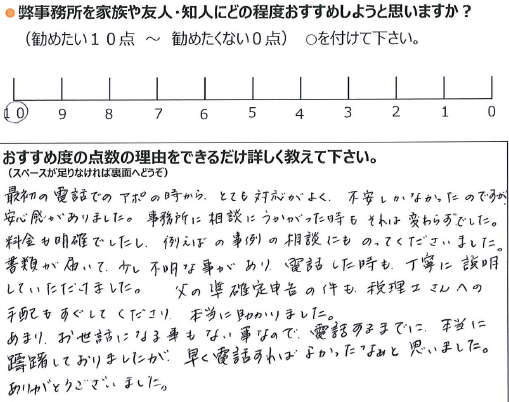 ●弊事務所を家族や友人・知人にどの程度おすすめしようと思いますか？
（勧めたい１０点　～　勧めたくない０点）　○を付けて下さい。
10 9 8 7 6 5 4 3 2 1 0
おすすめ度の点数の理由をできるだけ詳しく教えて下さい。
（スペースが足りなければ裏面へどうぞ）
最初の電話でのアポの時から、とても対応がよく、不安しかなかったのですが、
安心感がありました。事務所に相談にうかがった時もそれは変わらずでした。
料金も明確でしたし、例えばの事例の相談にものってくださいました。
書類が届いて、少し不明な事があり、電話した時も、丁寧に説明
していただけました。　父の準確定申告の件も、税理士さんへの
手配もすぐしてくださり、本当に助かりました。
あまり、お世話になる事もない事なので、電話するまでに、本当に
躊躇しておりましたが、早く電話すればよかったなぁと思いました。
ありがとうございました。